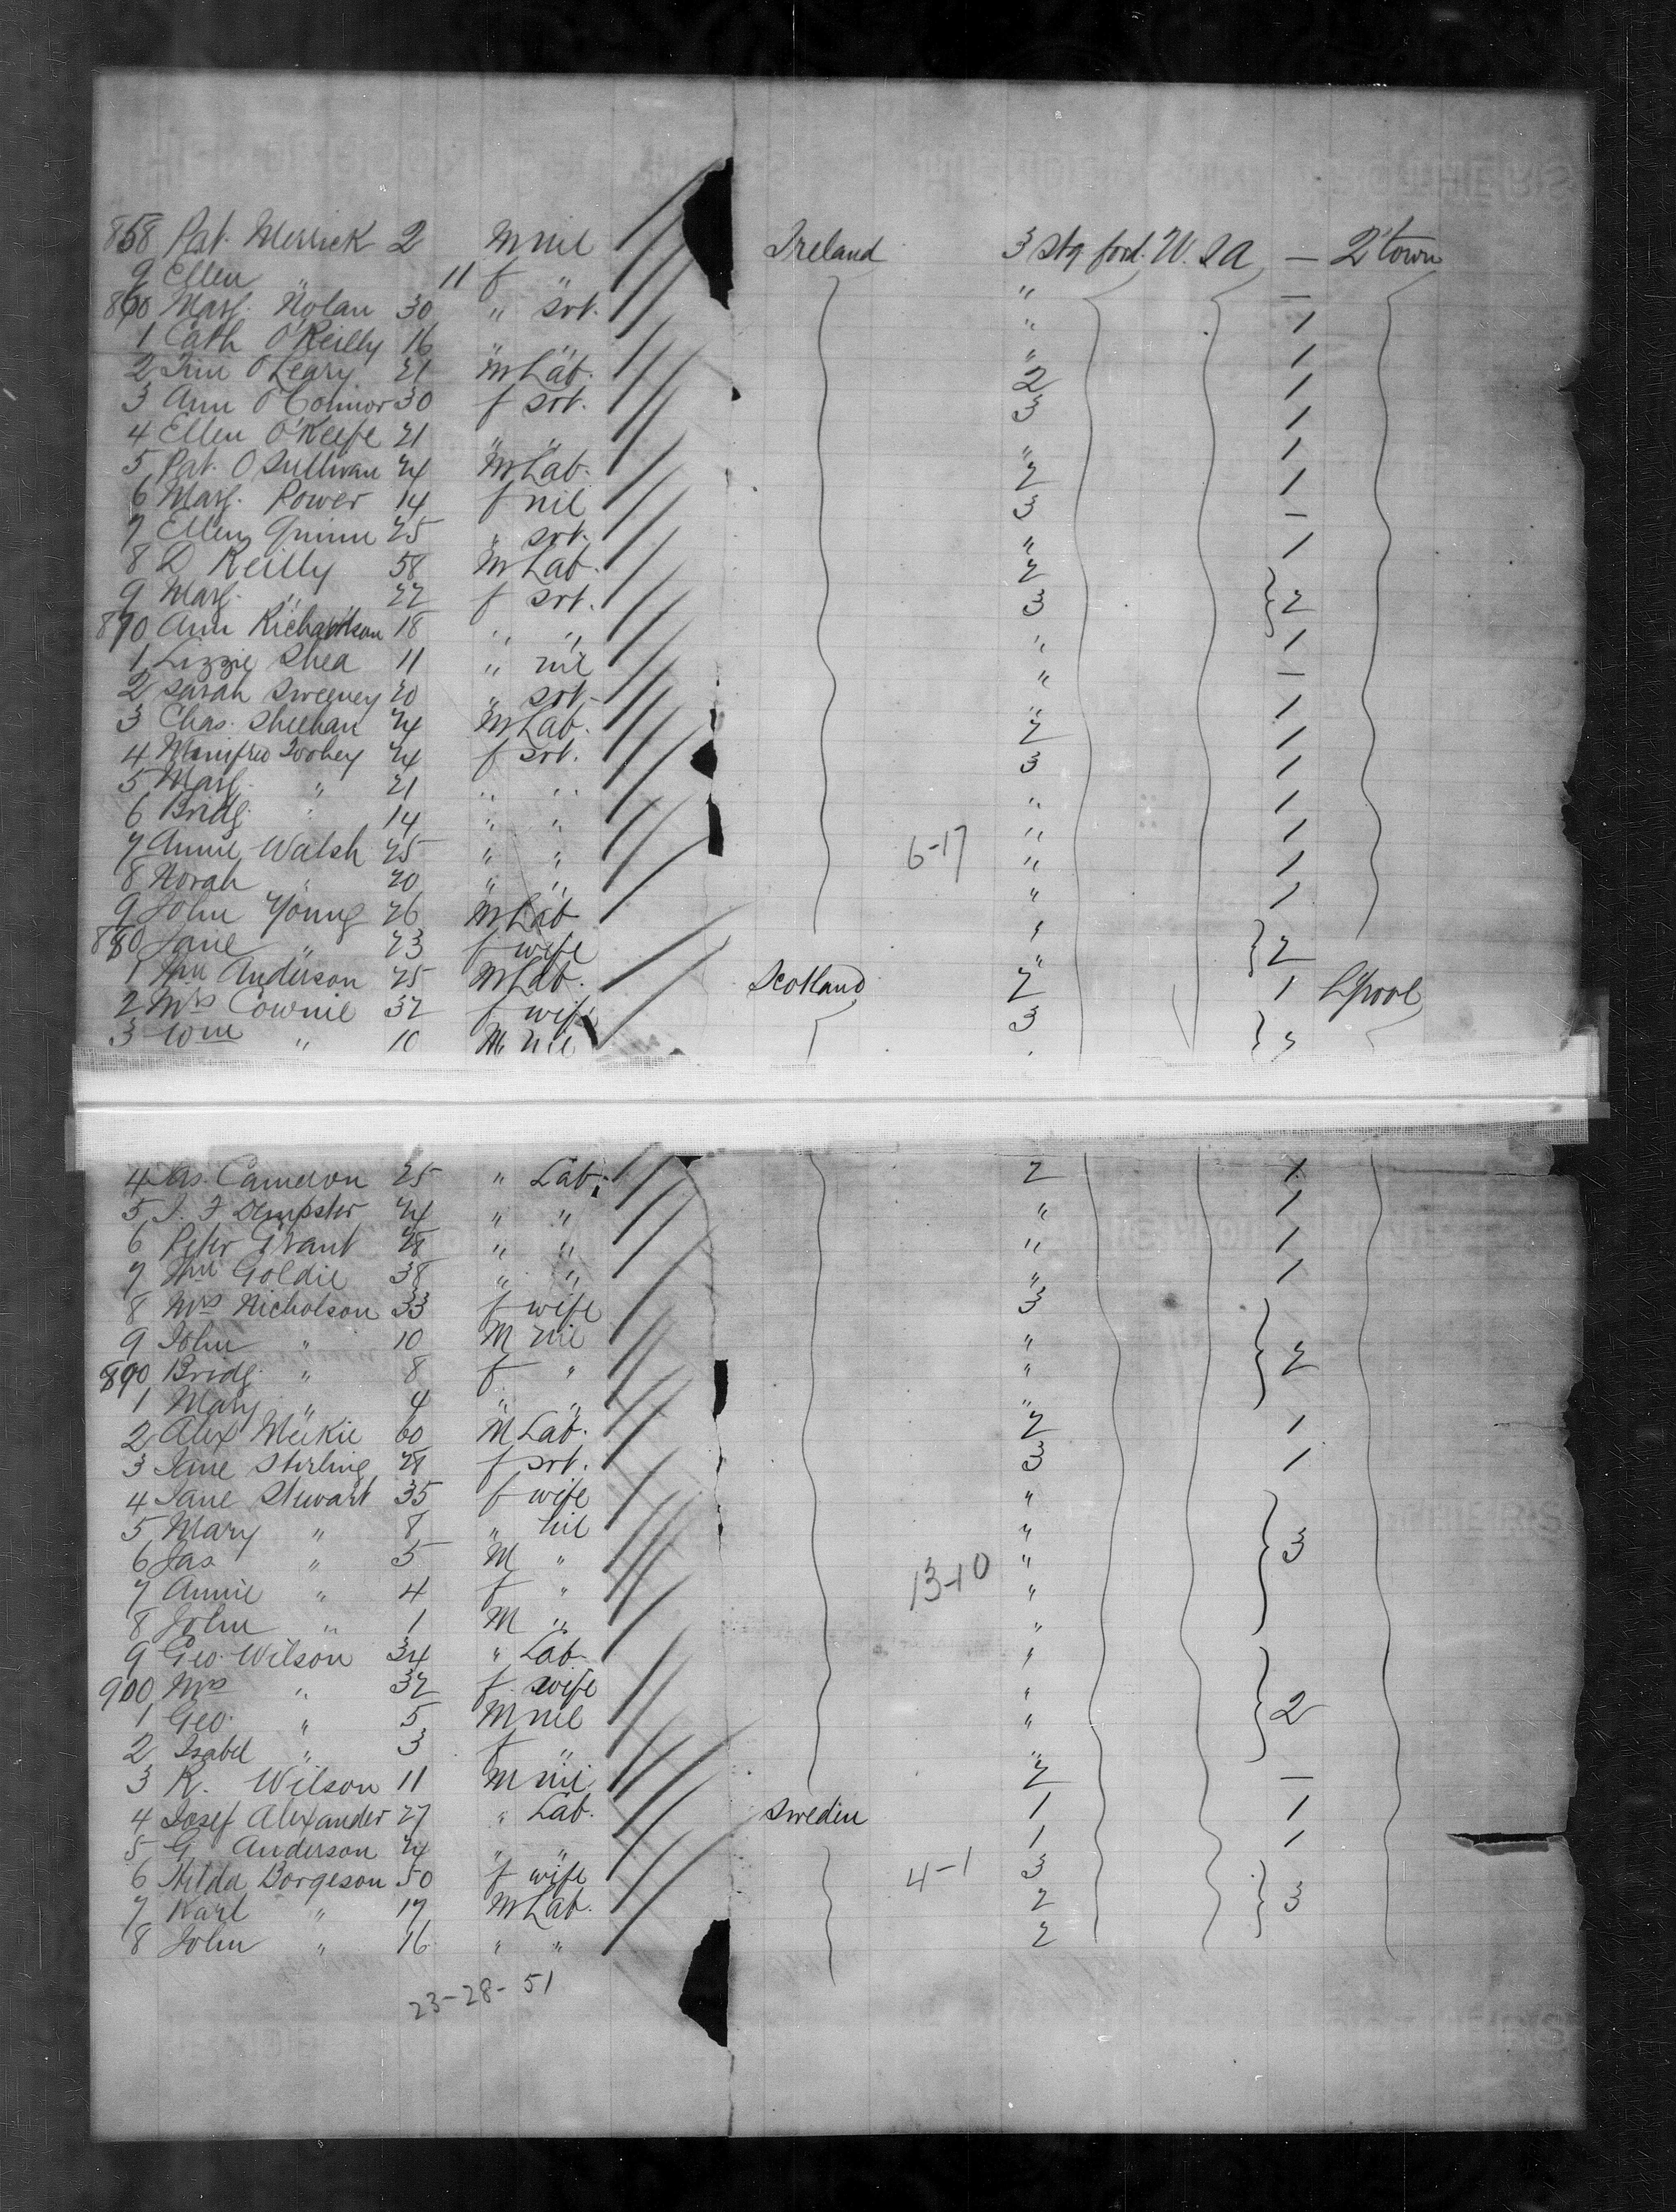 868 Pat. Merrick 2 M nil Ireland 3 Stg ford. U.S.A — Q'town
9 Ellen " 11 f " " —
860 Marg. Nolan 30 " srt. " 1
1 Cath O'Reilly 16 " " " 1
2 Tim O'Leary 21 M Lab. 2 1
3 Ann O'Connor 30 f srt. 3 1
4 Ellen O'Keefe 21 " " " 1
5 Pat. O'Sullivan 24 M Lab. 2 1
6 Marg. Power 14 f nil 3 —
7 Ellen Quinn 25 " srt. " 1
8 D Reilly 58 M Lab. 2
9 Marg. " 22 f srt. 3 2
870 Ann Richardson 18 " " " 1
1 Lizzie Shea 11 " nil " —
2 Sarah Sweeney 20 " srt. " 1
3 Chas. Sheehan 24 M Lab. 2 1
4 Winifred 24 f srt. 3 1
5 Marg. " 21 " " " 1
6 Bridg. " 14 " " " 1
7 Annie Walsh 25 " " 6-17 " 1
8 Norah " 20 " " " 1
9 John Young 26 M Lab "
880 Jane " 23 f wife " 2
1 Wm Anderson 25 M Lab. Scotland 2 1 L'pool
2 Mrs Cownie 32 f wife 3
3 Wm " 10 M nil
4 Jas. Cameron 25 " Lab. 2 1
5 J. F Dempster 24 " " " 1
6 Peter Grant 28 " " " 1
7 Wm Goldie 38 " " " 1
8 Mrs Nicholson 33 f wife 3
9 John " 10 M nil "
890 Bridg. " 8 f " " 2
1 Mary " 4 " " "
2 Alex Meikie 60 M Lab. 2 1
3 Jane Stirling 28 f srt. 3 1
4 Jane Stewart 35 f wife "
5 Mary " 8 " nil "
6 Jas " 5 M " " 3
7 Annie " 4 f " 13-10 "
8 John " 1 M " "
9 Geo. Wilson 34 " Lab. "
900 Mrs " 32 f wife "
1 Geo. " 5 M nil " 2
2 Isabel " 3 f " "
3 R. Wilson 11 M nil 2 —
4 Josef Alexander 27 " Lab. Sweden 1 1
5 G Anderson 24 " " 1 1
6 Hilda Borgeson 50 f wife 4-1 3
7 Karl " 19 M Lab. 2 3
8 John " 16 " " 2
23-28-51